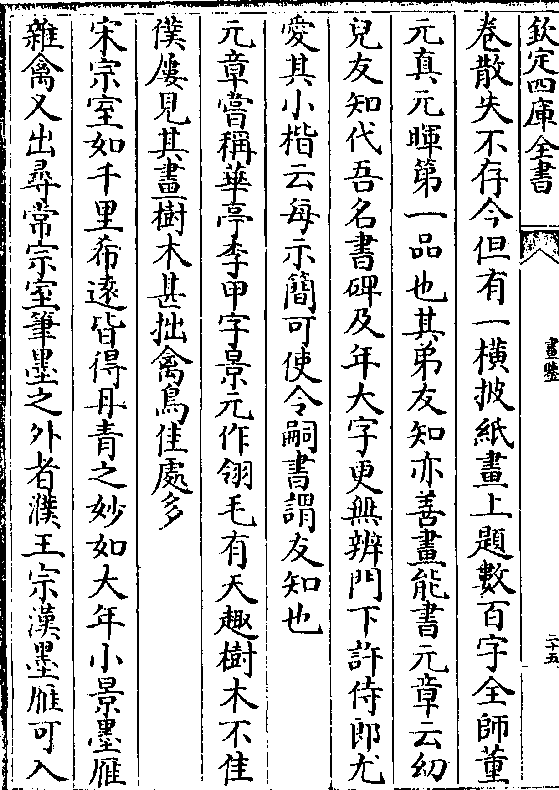 欽定四庫全書
畫鑒
二十五
卷散失不存今但有一橫披紙畫上題數百字全師董
元真元暉第一品也其弟友知亦善畫能書元章云幼
兒友知代吾名書碑及年大字更無辨門下許侍郎尤
愛其小楷云每示簡可使令嗣書謂友知也
元章嘗稱華亭李甲字景元作翎毛有天趣樹木不佳
僕屢見其畫樹木甚拙禽鳥佳處多
宋宗室如千里希逺皆得丹青之妙如大年小景墨雁
雜禽又出尋常宗室筆墨之外者濮王宗漢墨雁可入